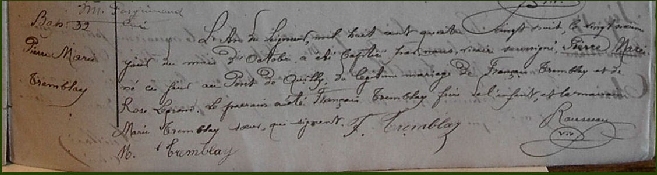 Bap 32
Pierre Marie
Tremblay
L'An du Seigneur, mil huit cent quatre vingt huit le vingt
jour du mois d'Octobre a été baptisé par nous, vicaire soussigné, Pierre Marie
né ce jour au Pont de Quilly, de légitime mariage de François Tremblay et de
Rose Legrand. Le parrain a été François Tremblay frère de l'enfant, et la marraine
Marie Tremblay sœur, qui signent. F. Tremblay
Rousseau
M. Tremblay
vic.